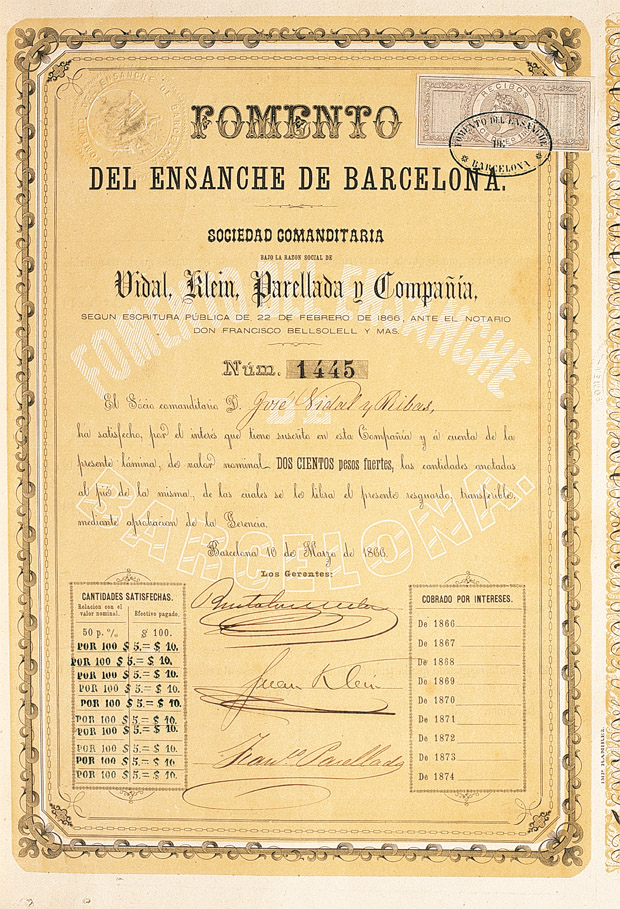 FOMENTO
DEL ENSANCHE DE BARCELONA.
RECIBOS
FOMENTO DEL ENSANCHE
DE
BARCELONA
SOCIEDAD COMANDITARIA
BAJO LA RAZON SOCIAL DE
Vidal, Klein, Parellada y Compañía,
SEGUN ESCRITURA PÚBLICA DE 22 DE FEBRERO DE 1866, ANTE EL NOTARIO
DON FRANCISCO BELLSOLELL Y MAS.
FOMENTO DEL ENSANCHE
DE
BARCELONA.
Núm. 1445
El Sócio comanditario D. José Vidal y Ribas,
ha satisfecho, por el interés que tiene suscrito en esta Compañía y á cuenta de la
presente lámina, de valor nominal DOS CIENTOS pesos fuertes, las cantidades anotadas
al pié de la misma, de las cuales se le libra el presente resguardo, transferible,
mediante aprobacion de la Gerencia.
Barcelona 16 de Marzo de 1866.
Los Gerentes:
CANTIDADES SATISFECHAS.
Relacion con el valor nominal.
Efectivo pagado.
50 p. % $ 100.
POR 100 $ 5.= $ 10.
POR 100 $ 5.= $ 10.
POR 100 $ 5.= $ 10.
POR 100 $ 5.= $ 10.
POR 100 $ 5.= $ 10.
POR 100 $ 5.= $ 10.
POR 100 $ 5.= $ 10.
POR 100 $ 5.= $ 10.
POR 100 $ 5.= $ 10.
POR 100 $ 5.= $ 10.
Juan Klein
Franco Parellada
COBRADO POR INTERESES.
De 1866
De 1867
De 1868
De 1869
De 1870
De 1871
De 1872
De 1873
De 1874
IMP RAMIREZ